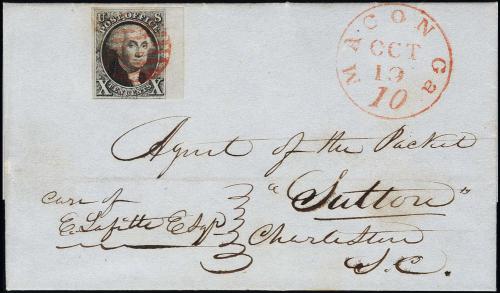 U S
POST OFFICE
X TEN CENTS X
MACON Ga
OCT
19
10
Agent of the Packet
"Sutton"
care of
E. Lafitte Esqr
Charleston
S.C.